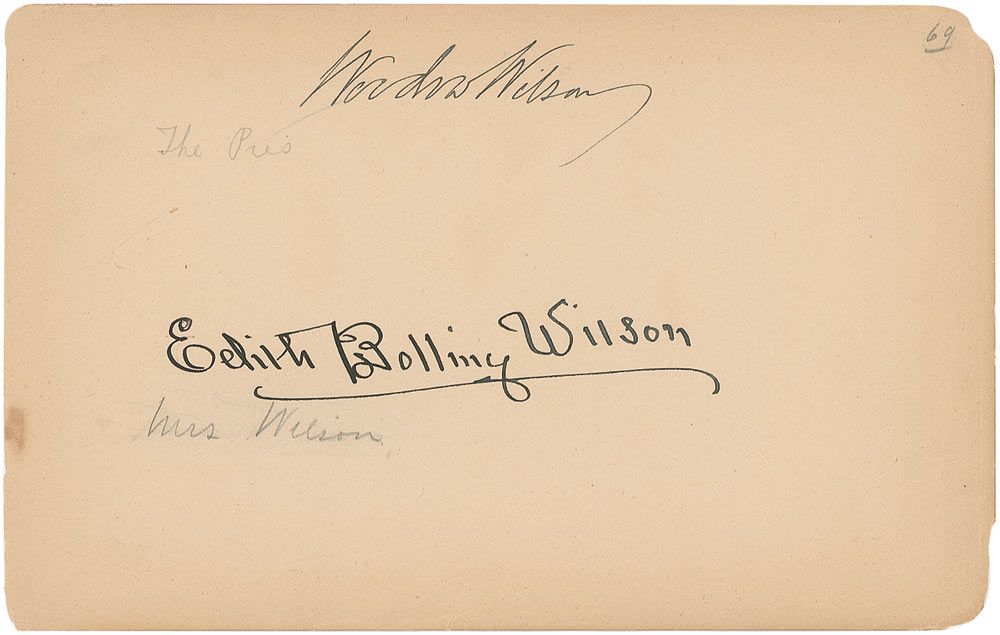 69
Woodrow Wilson
The Pres
Edith Bolling Wilson
Mrs Wilson